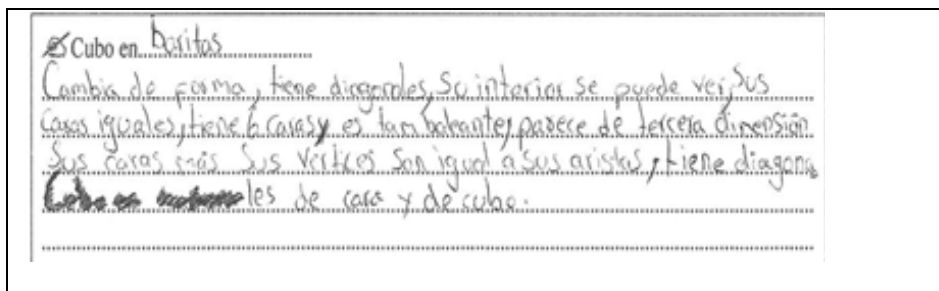 Cubo en baritas
Cambia de forma, tiene diagonales, Su interior se puede ver, Sus
Caras iguales, tiene 6 caras y es tambaleante, parece de tercera dimensión
Sus caras más Sus vertices son igual a sus aristas, tiene diagona
les de cara y de cubo.